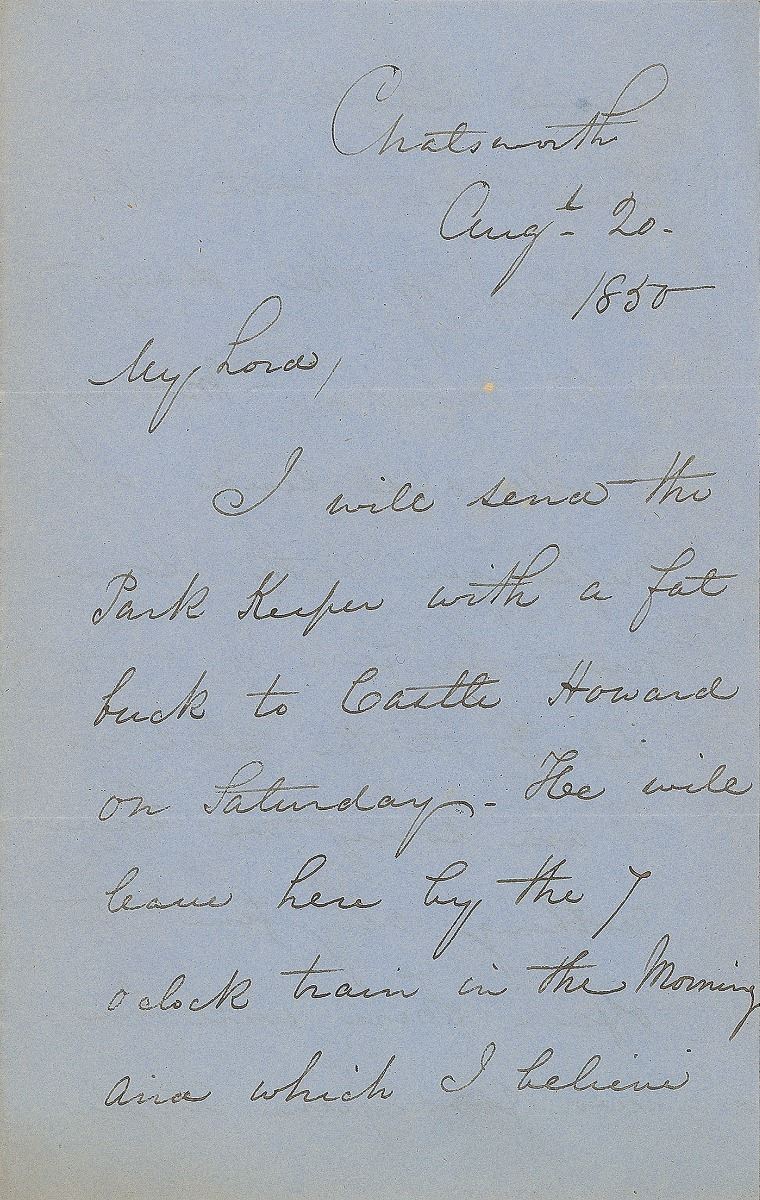 Chatsworth
Augt. 20.
1850
My Lord,
I will send the
Park Keeper with a fat
buck to Castle Howard
on Saturday. He will
leave here by the 7
oclock train in the Morning
and which I believe